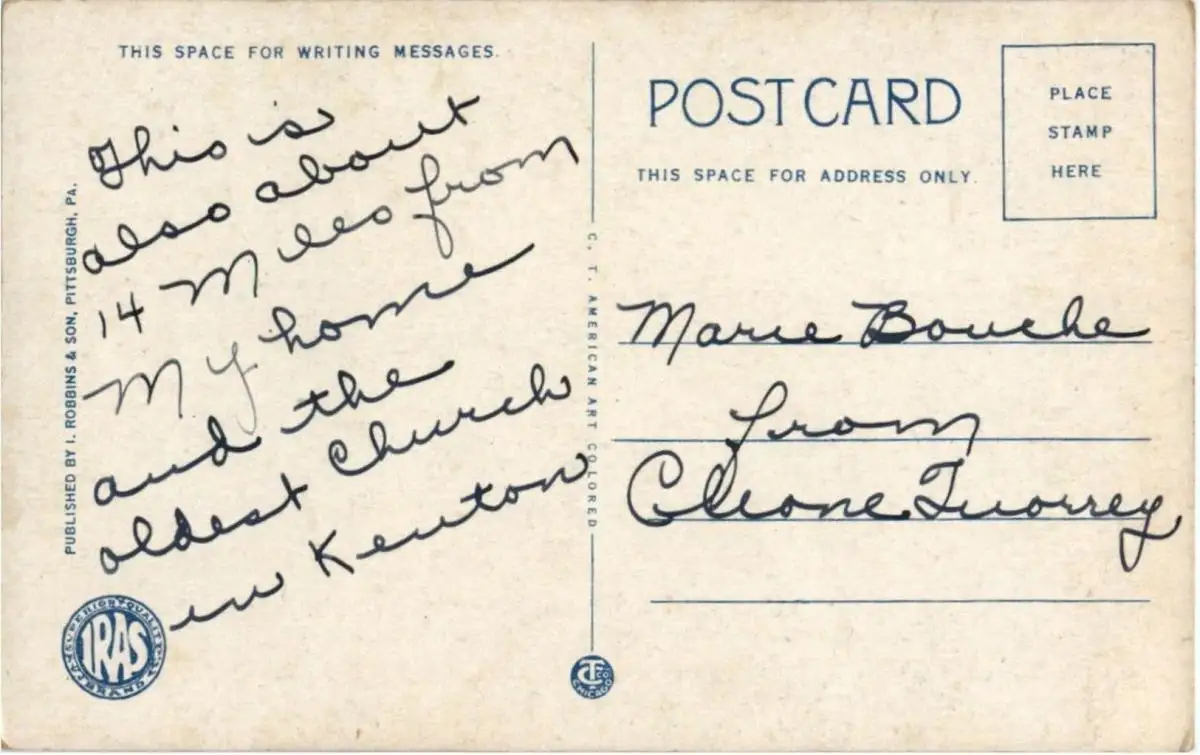 THIS SPACE FOR WRITING MESSAGES.
This is
also about
14 Miles from
My home
and the
oldest Church
in Kenton
PUBLISHED BY I. ROBBINS & SON, PITTSBURGH, PA.
SUPERIOR QUALITY
IRAS
BRAND
C. T. AMERICAN ART COLORED
CT CO
CHICAGO
POST CARD
THIS SPACE FOR ADDRESS ONLY.
PLACE
STAMP
HERE
Marie Bouche
from
Cleone